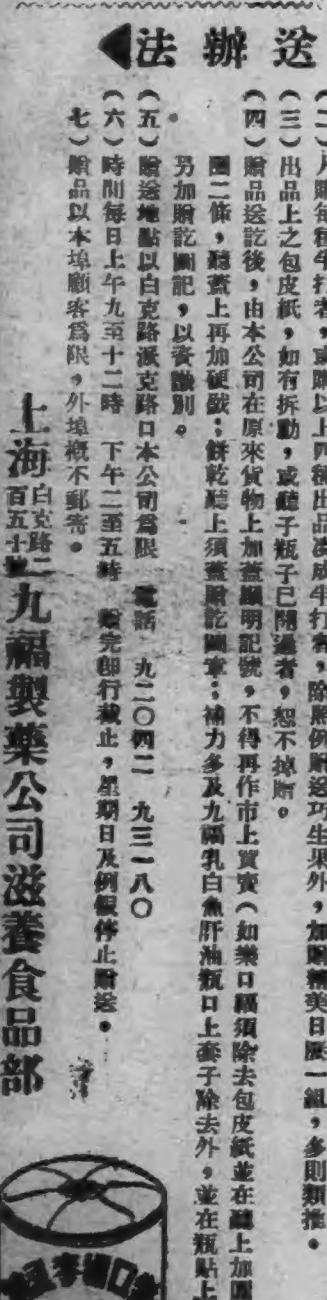 送辦法
(二)凡購每種半打者,或購以上四種出品湊成半打者,除照例贈送巧生果外,加贈精美日曆一組,多則類推。
(三)出品上之包皮紙,如有拆動,或聽子瓶子已開過者,恕不掉贈。
(四)贈品送訖後,由本公司在原來貨物上加蓋顯明記號,不得再作市上買賣(如樂口福須除去包皮紙並在聽上加圓
圈二條,聽蓋上再加硬戳;餅乾聽上須蓋贈訖圖章;補力多及九福乳白魚肝油瓶口上套子除去外,並在瓶貼上
另加贈訖圖記,以資識別。
(五)贈送地點以白克路派克路口本公司爲限 電話 九二〇四二 九三一八〇
(六)時間每日上午九至十二時 下午二至五時 贈完卽行截止,星期日及例假停止贈送。
(七)贈品以本埠顧客爲限,外埠概不郵寄。
上海白克路二百五十號九福製藥公司滋養食品部